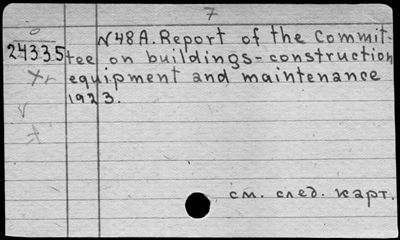 7
24335 N48A. Report of the Commit-
tee on buildings-construction
equipment and maintenance
1923.
см. след. карт.